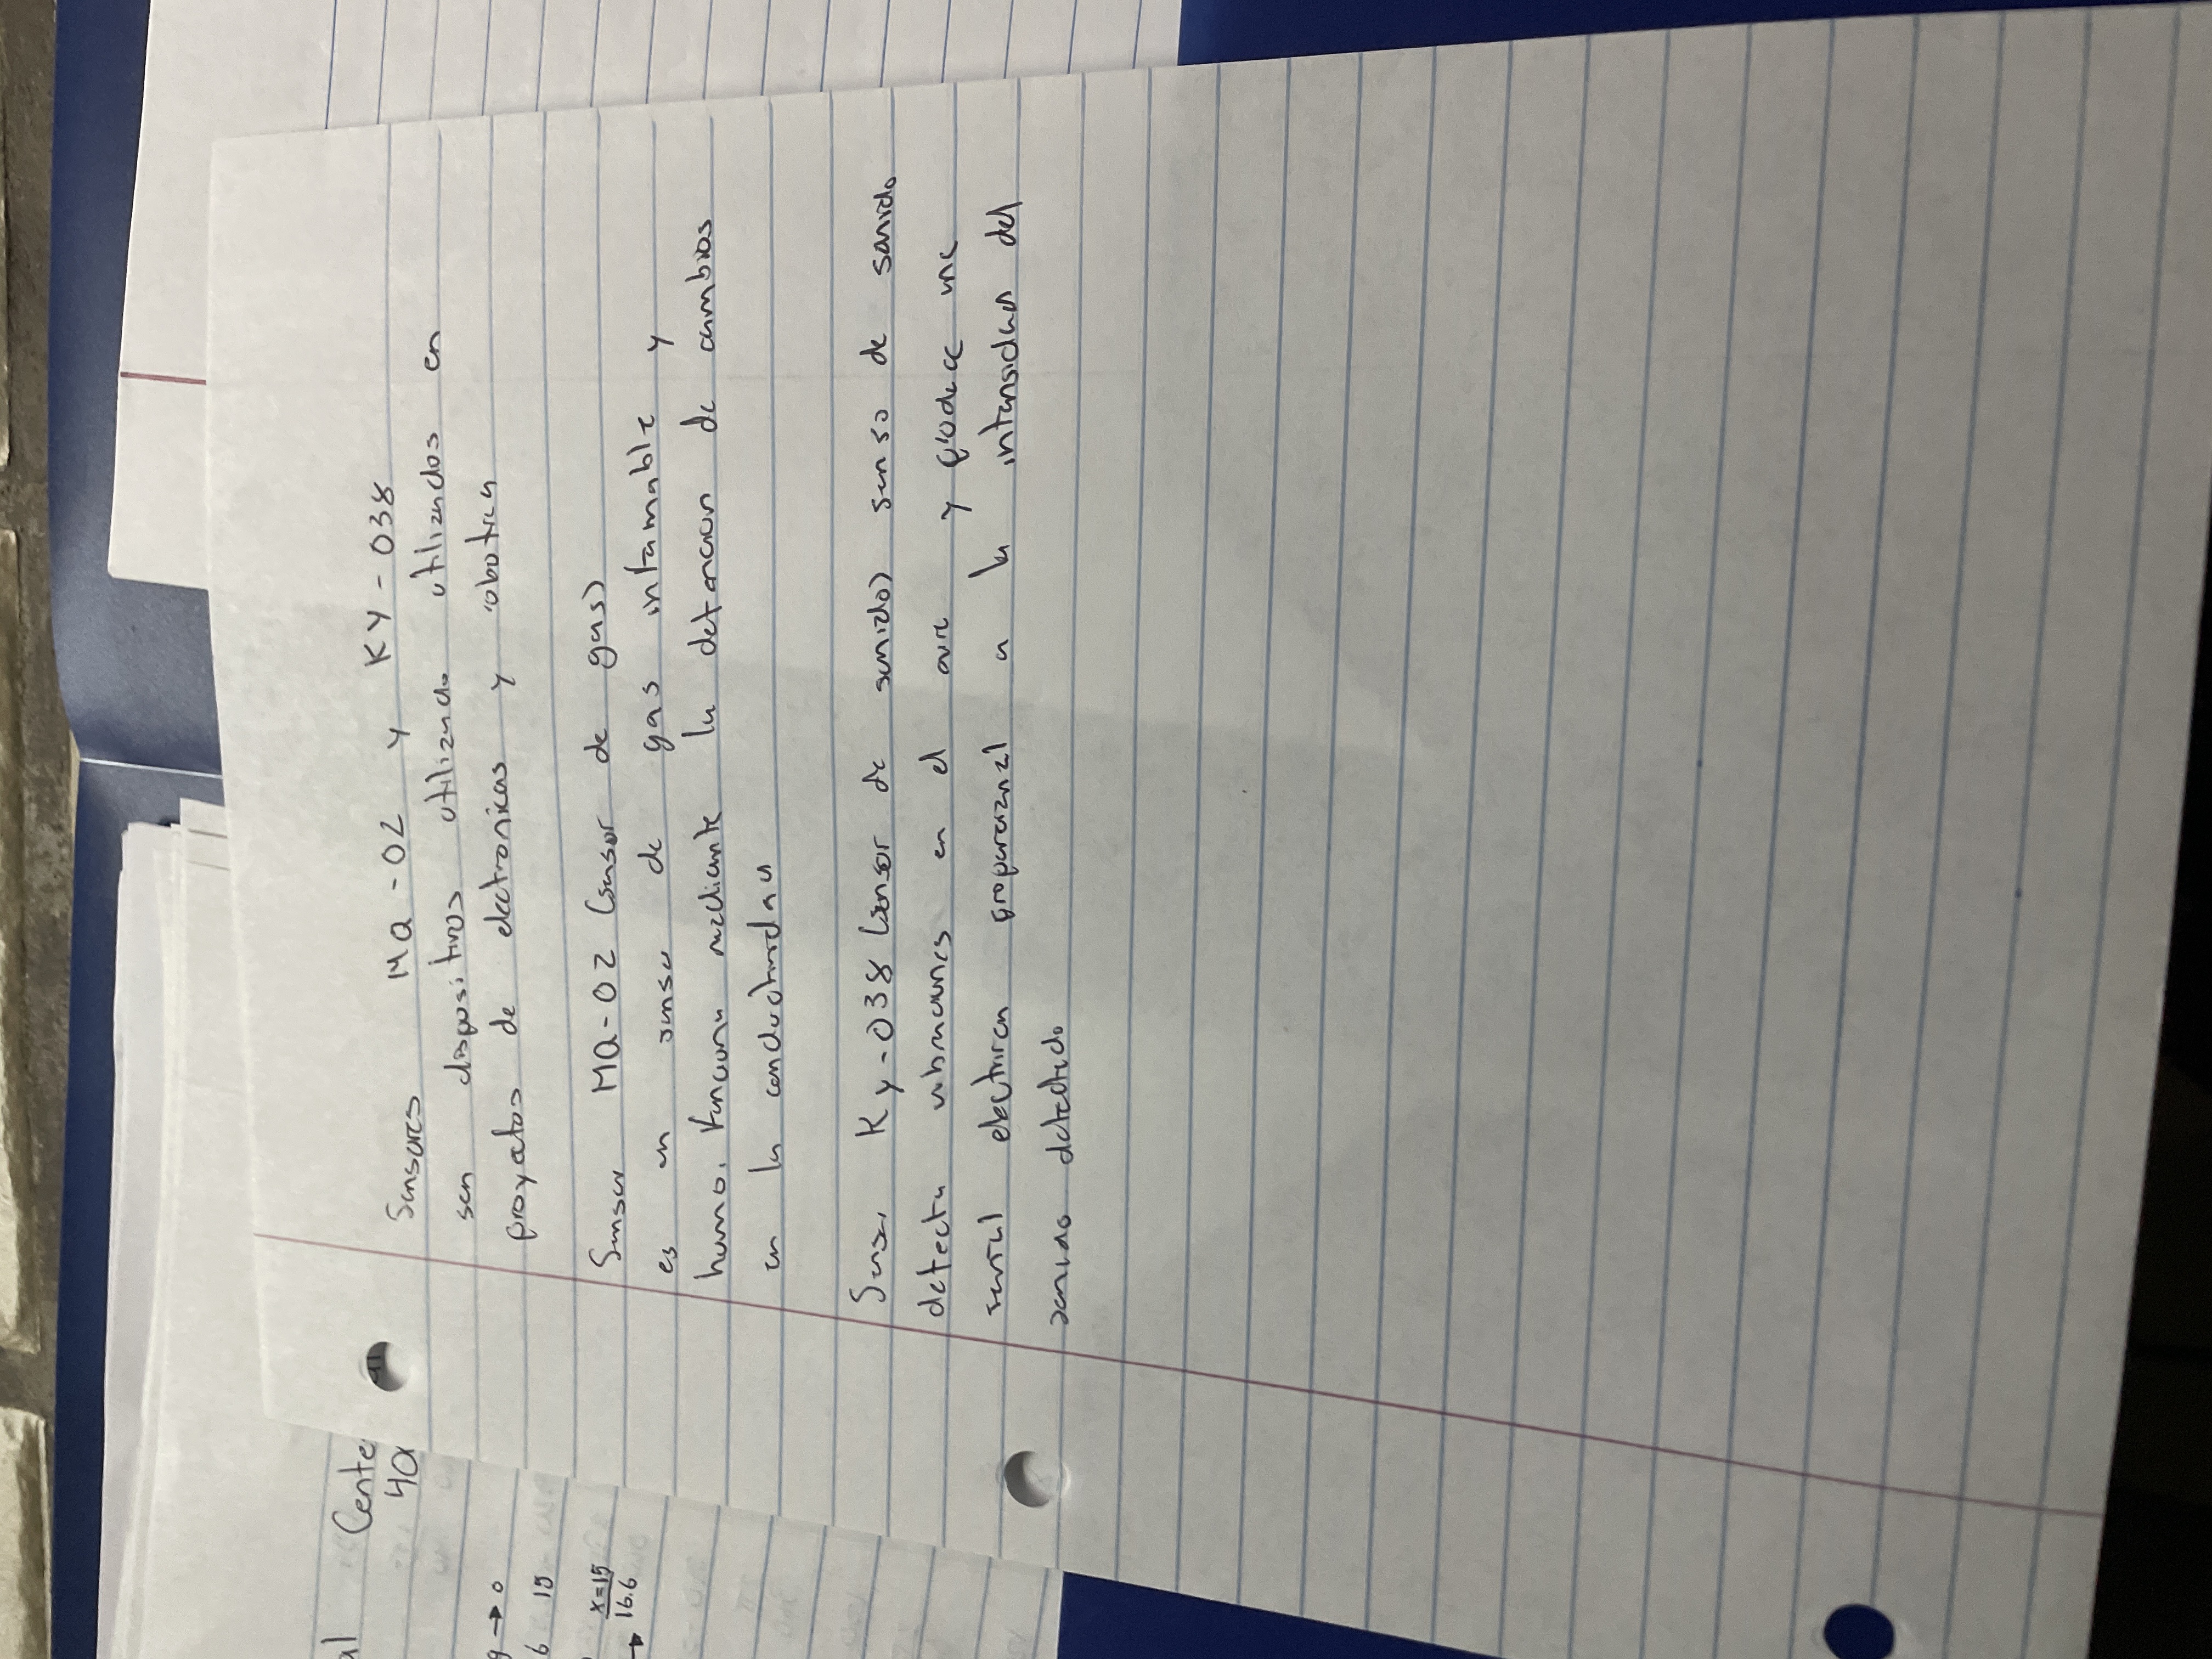 Sensores MQ-02 y KY-038
son dispositivos utilizando utilizados en
proyatos de electronicas y robotica
Sensor MQ-02 (sensor de gas)
es un sensor de gas inflamable y
humo. Funciona mediante la detencion de cambios
en la conductividad
Sensor Ky-038 (sensor de sonido) senso de sonido
detecta vibraciones en el aire y produce una
senal electrica proporcional a la intensidad del
sonido detectado
al Cente
40
g → 0
6 15
x=15
→ 16.6